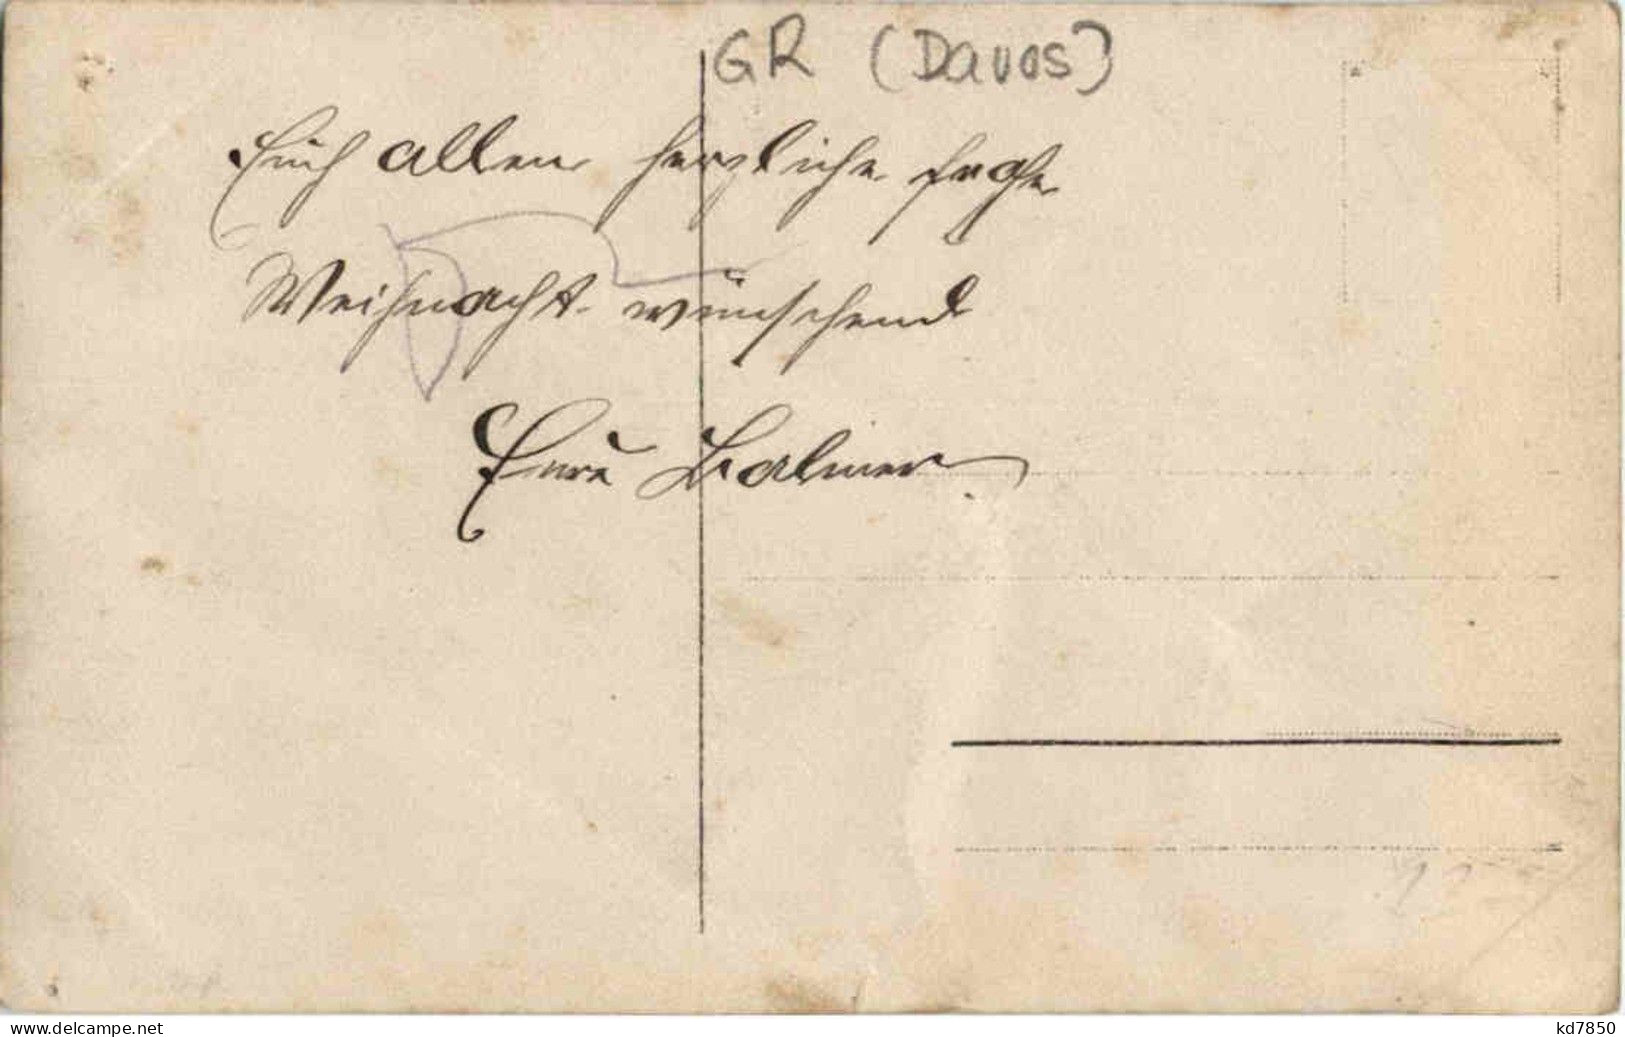 GR (Davos)
Euch allen herzliche frohe
Weihnacht wünschend
Eure Balmer
delcampe.net
kd7850